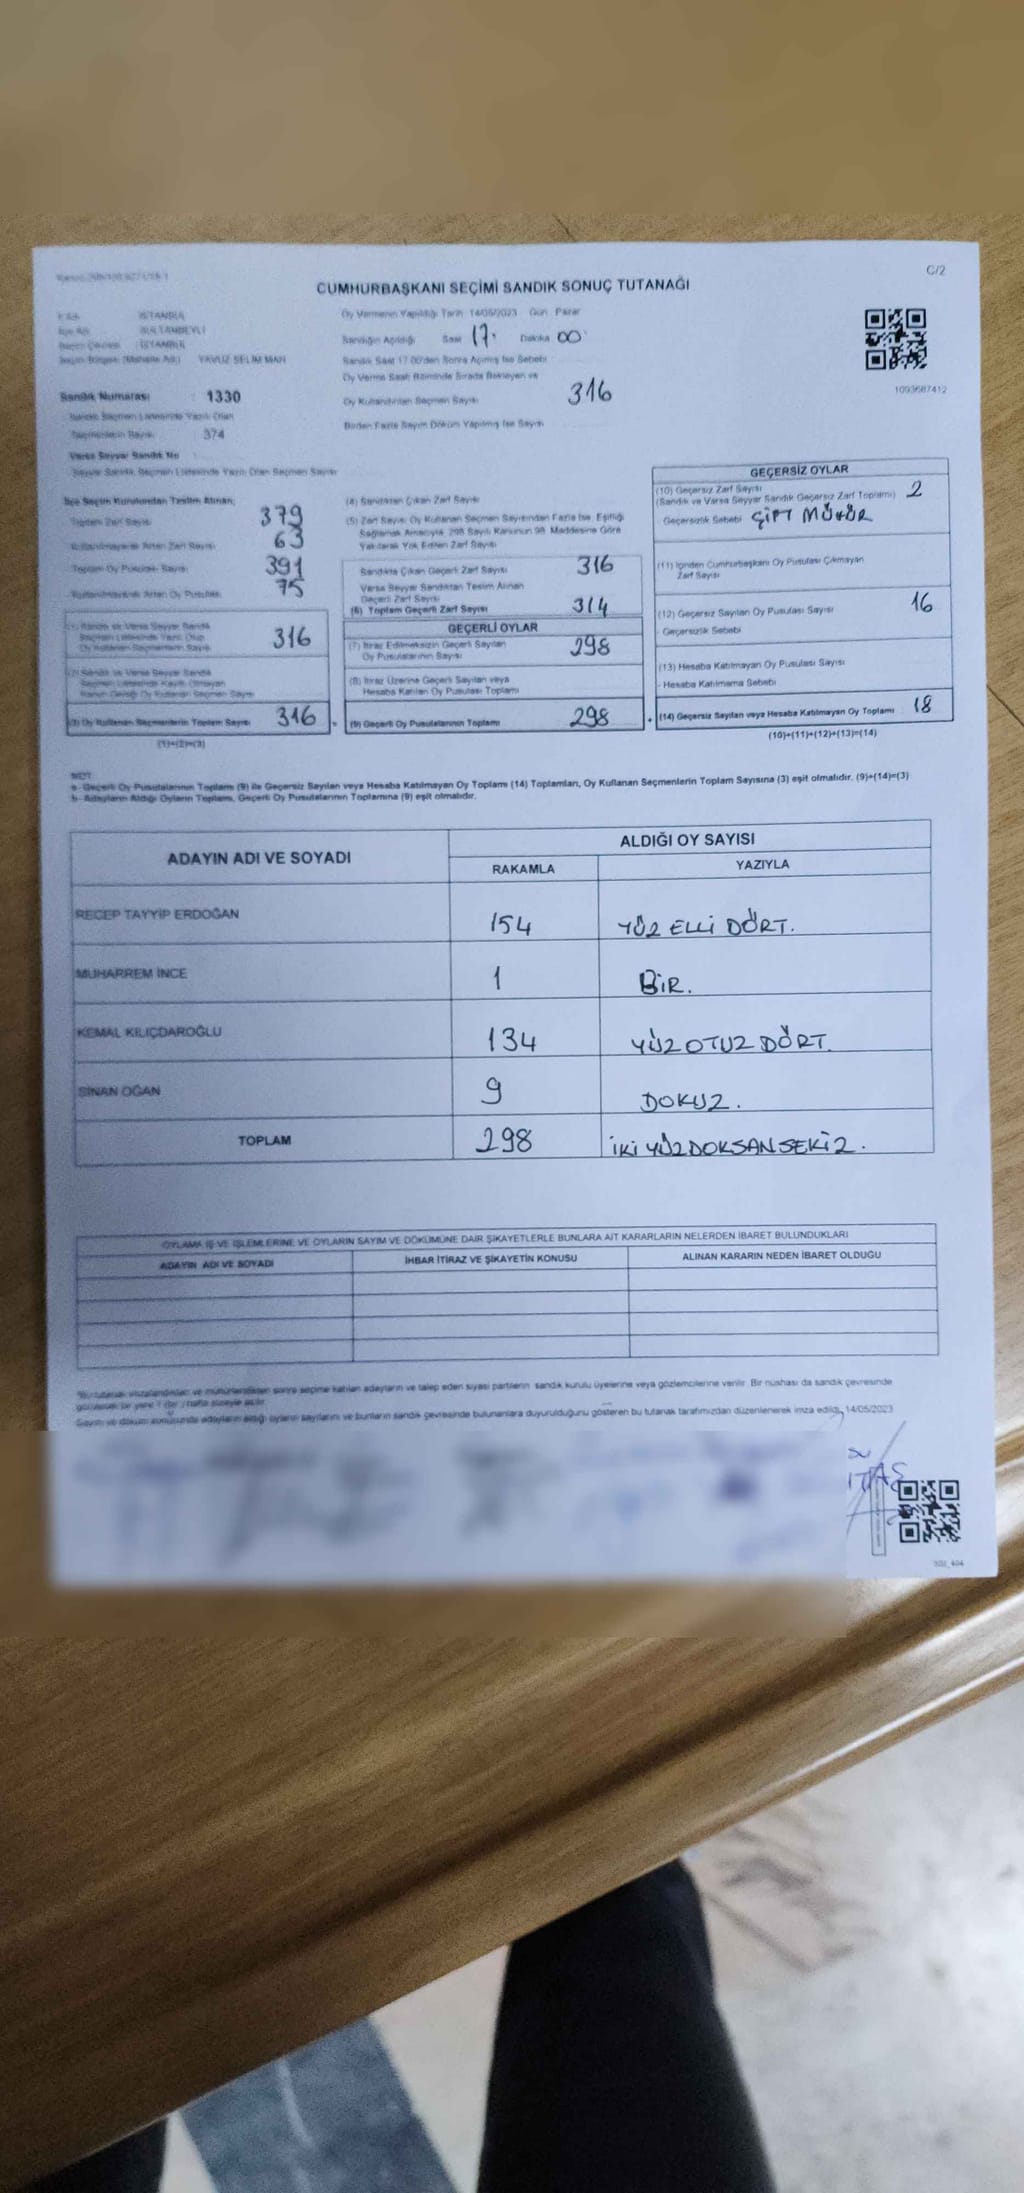 C/2
CUMHURBAŞKANI SEÇİMİ SANDIK SONUÇ TUTANAĞI
İSTANBUL
SULTANBEYLİ
İSTANBUL
Seçim Bölgesi (Mahalle Adı) YAVUZ SELİM MAH
Sandık Numarası : 1330
Sandık Seçmen Listesinde Yazılı Olan
Seçmenlerin Sayısı : 374
Varsa Seyyar Sandık No
Seyyar Sandık Seçmen Listesinde Yazılı Olan Seçmen Sayısı
Oy Vermenin Yapıldığı Tarih 14/05/2023 Gün Pazar
Sandığın Açıldığı Saat 17 Dakika 00
Sandık Saat 17.00'den Sonra Açılmış İse Sebebi
Oy Verme Saati Bitiminde Sırada Bekleyen ve
Oy Kullandırılan Seçmen Sayısı 316
Birden Fazla Sayım Döküm Yapılmış İse Sayısı
1093687412
İlçe Seçim Kurulundan Teslim Alınan;
Toplam Zarf Sayısı 379
Kullanılmayarak Artan Zarf Sayısı 63
Toplam Oy Pusulası Sayısı 391
Kullanılmayarak Artan Oy Pusulası 75
(1) Sandık ve Varsa Seyyar Sandık
Seçmen Listesinde Yazılı Olup
Oy Kullanan Seçmenlerin Sayısı 316
(2) Sandık ve Varsa Seyyar Sandık
Seçmen Listesinde Kayıtlı Olmayan
Kanun Gereği Oy Kullanan Seçmen Sayısı
(3) Oy Kullanan Seçmenlerin Toplam Sayısı 316
(1)+(2)=(3)
(4) Sandıktan Çıkan Zarf Sayısı
(5) Zarf Sayısı Oy Kullanan Seçmen Sayısından Fazla İse, Eşitliği
Sağlamak Amacıyla, 298 Sayılı Kanunun 98. Maddesine Göre
Yakılarak Yok Edilen Zarf Sayısı
Sandıkta Çıkan Geçerli Zarf Sayısı 316
Varsa Seyyar Sandıktan Teslim Alınan
Geçerli Zarf Sayısı
(6) Toplam Geçerli Zarf Sayısı 314
GEÇERLİ OYLAR
(7) İtiraz Edilmeksizin Geçerli Sayılan
Oy Pusulalarının Sayısı 298
(8) İtiraz Üzerine Geçerli Sayılan veya
Hesaba Katılan Oy Pusulası Toplamı
(9) Geçerli Oy Pusulalarının Toplamı 298
GEÇERSİZ OYLAR
(10) Geçersiz Zarf Sayısı
(Sandık ve Varsa Seyyar Sandık Geçersiz Zarf Toplamı) 2
Geçersizlik Sebebi ÇİFT MÜHÜR
(11) İçinden Cumhurbaşkanı Oy Pusulası Çıkmayan
Zarf Sayısı
(12) Geçersiz Sayılan Oy Pusulası Sayısı 16
- Geçersizlik Sebebi
(13) Hesaba Katılmayan Oy Pusulası Sayısı
- Hesaba Katılmama Sebebi
(14) Geçersiz Sayılan veya Hesaba Katılmayan Oy Toplamı 18
(10)+(11)+(12)+(13)=(14)
NOT
a- Geçerli Oy Pusulalarının Toplamı (9) ile Geçersiz Sayılan veya Hesaba Katılmayan Oy Toplamı (14) Toplamları, Oy Kullanan Seçmenlerin Toplam Sayısına (3) eşit olmalıdır. (9)+(14)=(3)
b- Adayların Aldığı Oyların Toplamı, Geçerli Oy Pusulalarının Toplamına (9) eşit olmalıdır.
ADAYIN ADI VE SOYADI ALDIĞI OY SAYISI
RAKAMLA YAZIYLA
RECEP TAYYİP ERDOĞAN 154 YÜZ ELLİ DÖRT.
MUHARREM İNCE 1 BİR.
KEMAL KILIÇDAROĞLU 134 YÜZ OTUZ DÖRT.
SİNAN OĞAN 9 DOKUZ.
TOPLAM 298 İKİ YÜZ DOKSAN SEKİZ.
OYLAMA İŞ VE İŞLEMLERİNE VE OYLARIN SAYIM VE DÖKÜMÜNE DAİR ŞİKAYETLERLE BUNLARA AİT KARARLARIN NELERDEN İBARET BULUNDUKLARI
ADAYIN ADI VE SOYADI İHBAR İTİRAZ VE ŞİKAYETİN KONUSU ALINAN KARARIN NEDEN İBARET OLDUĞU
*Bu tutanak imzalandıktan ve mühürlendikten sonra seçime katılan adayların ve talep eden siyasi partilerin sandık kurulu üyelerine veya gözlemcilerine verilir. Bir nüshası da sandık çevresinde
görülecek bir yere 1 (bir) hafta süreyle asılır.
Sayım ve döküm sonucunda adayların aldığı oyların sayılarını ve bunların sandık çevresinde bulunanlara duyurulduğunu gösteren bu tutanak tarafımızdan düzenlenerek imza edildi. 14/05/2023